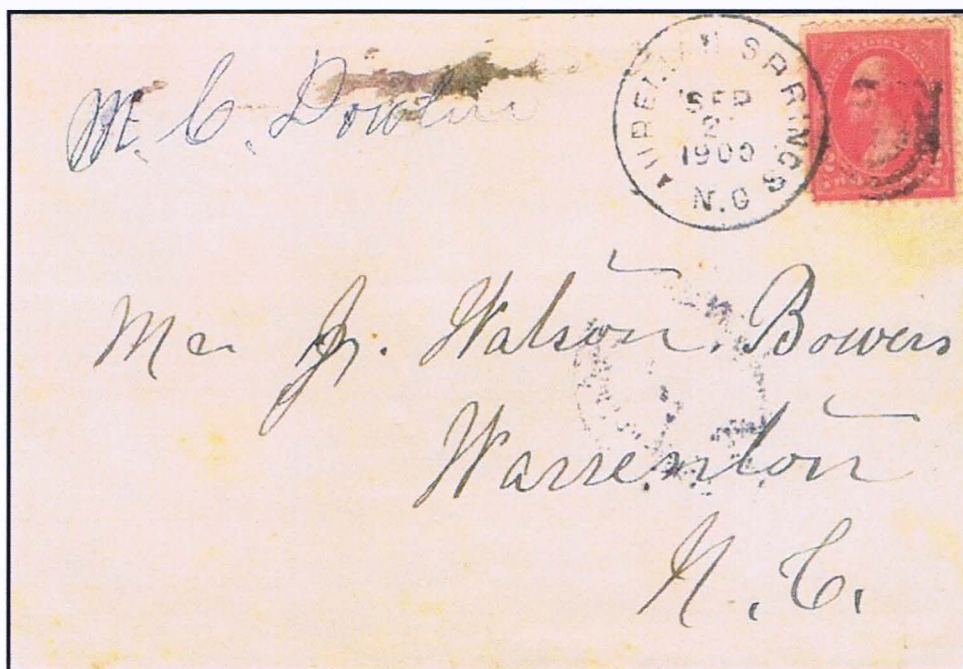 M. C.
AURELIAN SPRINGS
SEP
2
1900
N.C
Watson Bowers
Warrenton
N. C.